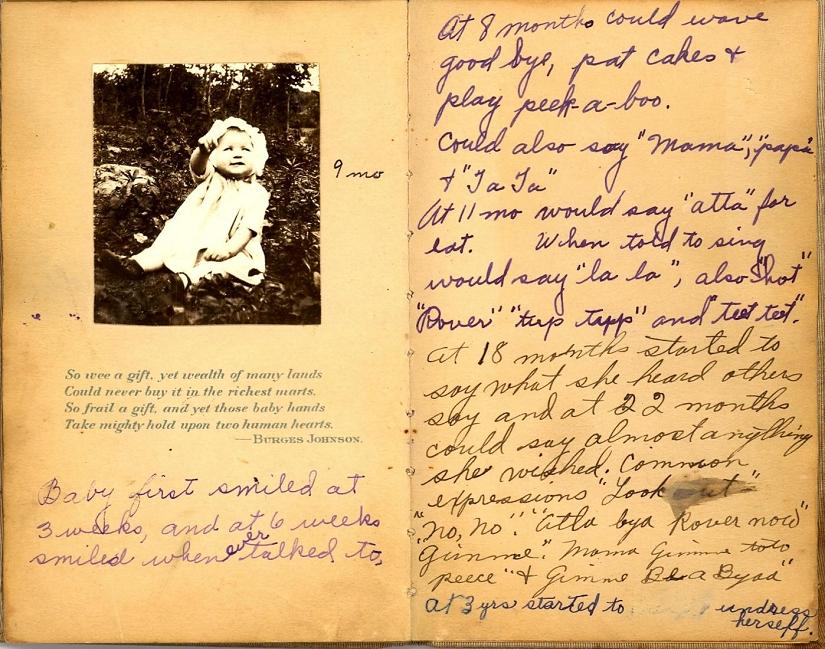 9 mo
So wee a gift, yet wealth of many lands
Could never buy it in the richest marts.
So frail a gift, and yet those baby hands
Take mighty hold upon two human hearts.
—BURGES JOHNSON.
Baby first smiled at
3 weeks, and at 6 weeks
smiled whenever talked to,
At 8 months could wave
good bye, pat cakes &
play peek-a-boo.
Could also say "Mama", "papa"
& "Ta Ta"
At 11 mo would say "atta" for
eat. When told to sing
would say "la la", also "hot"
"Rover" "turp tapp" and "teet teet".
At 18 months started to
say what she heard others
say and at 22 months
could say almost anything
she wished. Common
expressions "Look out"
"no, no". "Atta bya Rover now"
"Gimme". Mama Gimme toto
peece" & Gimme Bea Byaa"
At 3 yrs started to undress
herself.